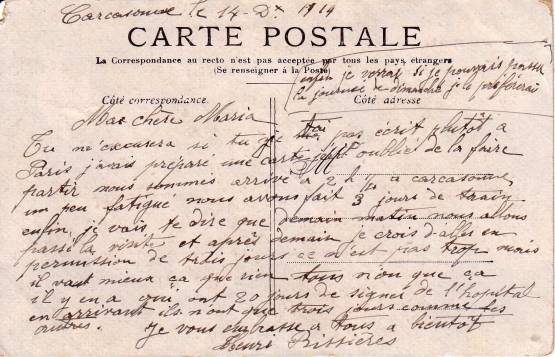 Carcasonne le 14 - Dx 1914
CARTE POSTALE
La Correspondance au recto n'est pas acceptée par tous les pays étrangers
(Se renseigner à la Poste)
enfin je verrai si je pourrais passer
la journée de dimanche je le préférerai
Côté correspondance.
Côté adresse
Ma chère Maria
Tu m'excusera si tu je t'ai pas écrit plutôt, a
Paris j'avais préparé une carte oublié de la faire
partir nous sommes arrivé a 2 h a carcasonne,
un peu fatigué nous avons fait 3 jours de train
enfin, je vais te dire que demain matin nous allons
passé la visite et après demain je crois d'aller en
permission de trois jours ce n'est pas trop mais
il vaut mieux ça que rien tous n'on que ça
il y en a qui ont 20 jours de signer de l'hopital
en arrivant ils n'ont que trois jours comme les
autres. Je vous embrasse a tous a bientôt
Henri Bissières